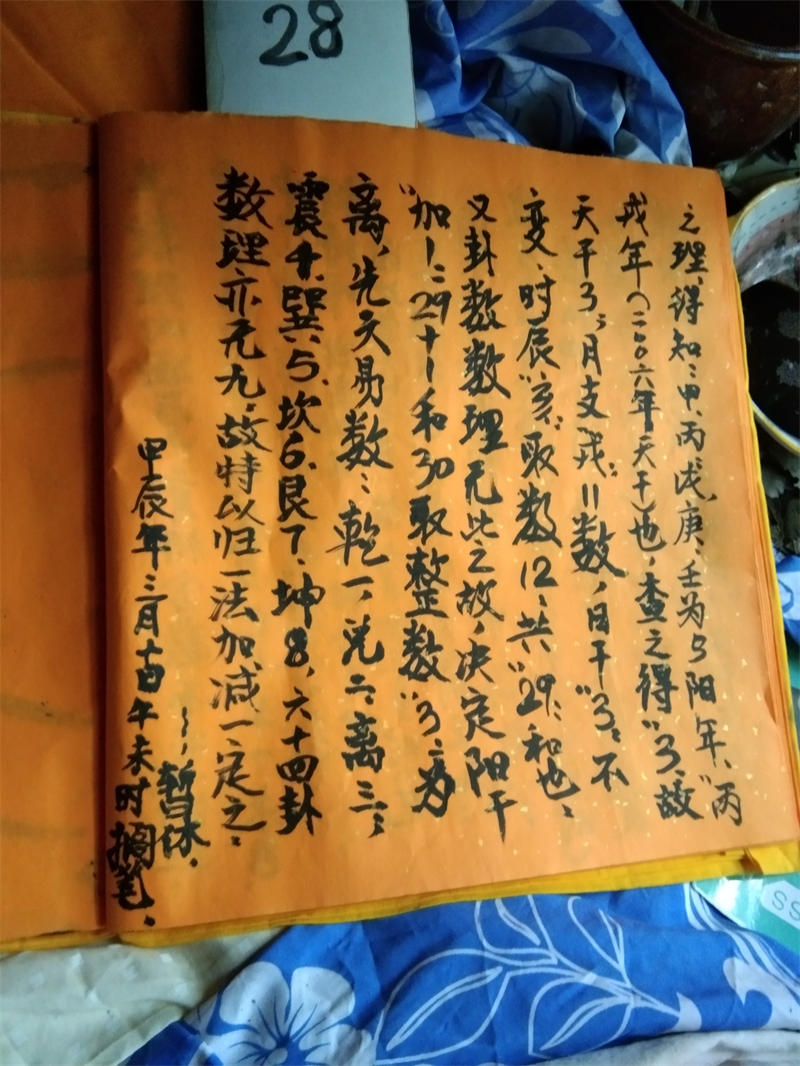 28
之理、得知：甲、丙戊庚、壬为5阳年、"丙
戌年（二00六年天干）也，查之得"3、故
天干3，月支"戌"11数，日干"3"不
变、时辰"亥"取数12，共"29"和也：
又卦数数理无此之故，决定阳干
"加1"：29+1和30取整数"3"为
离，先天易数：乾一，兑二，离三，
震4、巽5、坎6、艮7、坤8，六十四卦
数理亦无九，故特以归一法加减一定之：
~~暂休.
甲辰年三月十四午未时搁笔.
SS